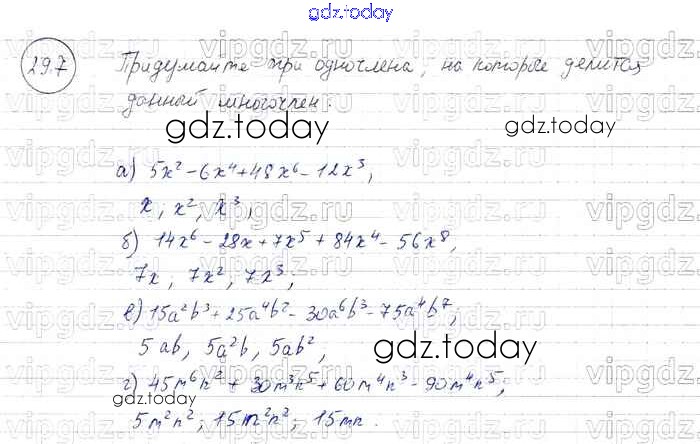 gdz.today
29.7 Придумайте три одночлена, на которые делится
данный многочлен:
gdz.today
а) 5x² - 6x⁴ + 48x⁶ - 12x³,
x, x², x³,
gdz.today
б) 14x⁶ - 28x + 7x⁵ + 84x⁴ - 56x⁸,
7x, 7x², 7x³,
в) 15a²b³ + 25a⁴b² - 30a⁶b³ - 75a⁴b⁷,
5ab, 5a²b, 5ab²,
gdz.today
г) 45m⁶n² + 30m³n⁵ + 60m⁴n³ - 90m⁴n⁵;
gdz.today
5m²n²; 15m²n²; 15mn.
vipgdz.ru